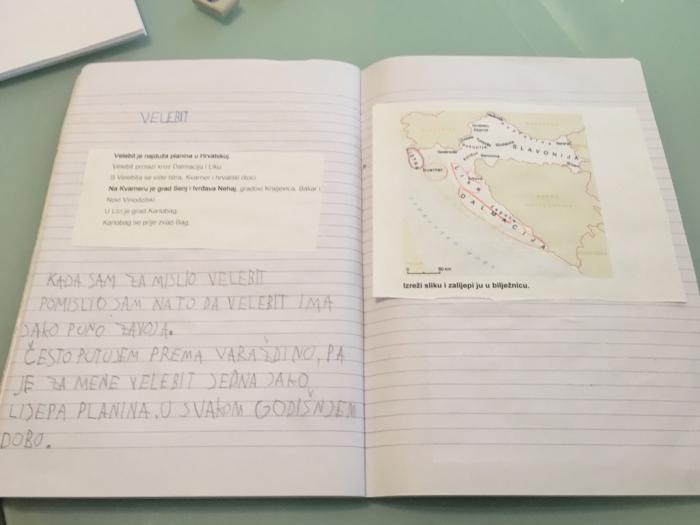 VELEBIT
Velebit je najduža planina u Hrvatskoj.
Velebit prolazi kroz Dalmaciju i Liku.
S Velebita se vide Istra, Kvarner i hrvatski otoci.
Na Kvarneru je grad Senj i tvrđava Nehaj, gradovi Kraljevica, Bakar i
Novi Vinodolski.
U Lici je grad Karlobag.
Karlobag se prije zvao Bag.
KADA SAM ZAMISLIO VELEBIT
POMISLIO SAM NA TO DA VELEBIT IMA
JAKO PUNO ZAVOJA.
ČESTO PUTUJEM PREMA VARAŽDINO, PA
JE ZA MENE VELEBIT JEDNA JAKO
LIJEPA PLANINA, U SVAKOM GODIŠNJEM
DOBU.
SLAVONIJA
ISTRA
Kvarner
LIKA
DALMACIJA
0 50 km
Izreži sliku i zalijepi ju u bilježnicu.